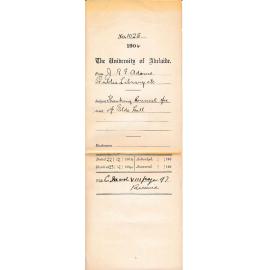 No. 1025
1904
The University of Adelaide.
From J. R. G. Adams
Public Library etc
Subject Thanking Council for
use of Elder Hall
Enclosures
Dated 22/12/1904, Acknowledged / /190
Received 23/12/1904, Answered / /190